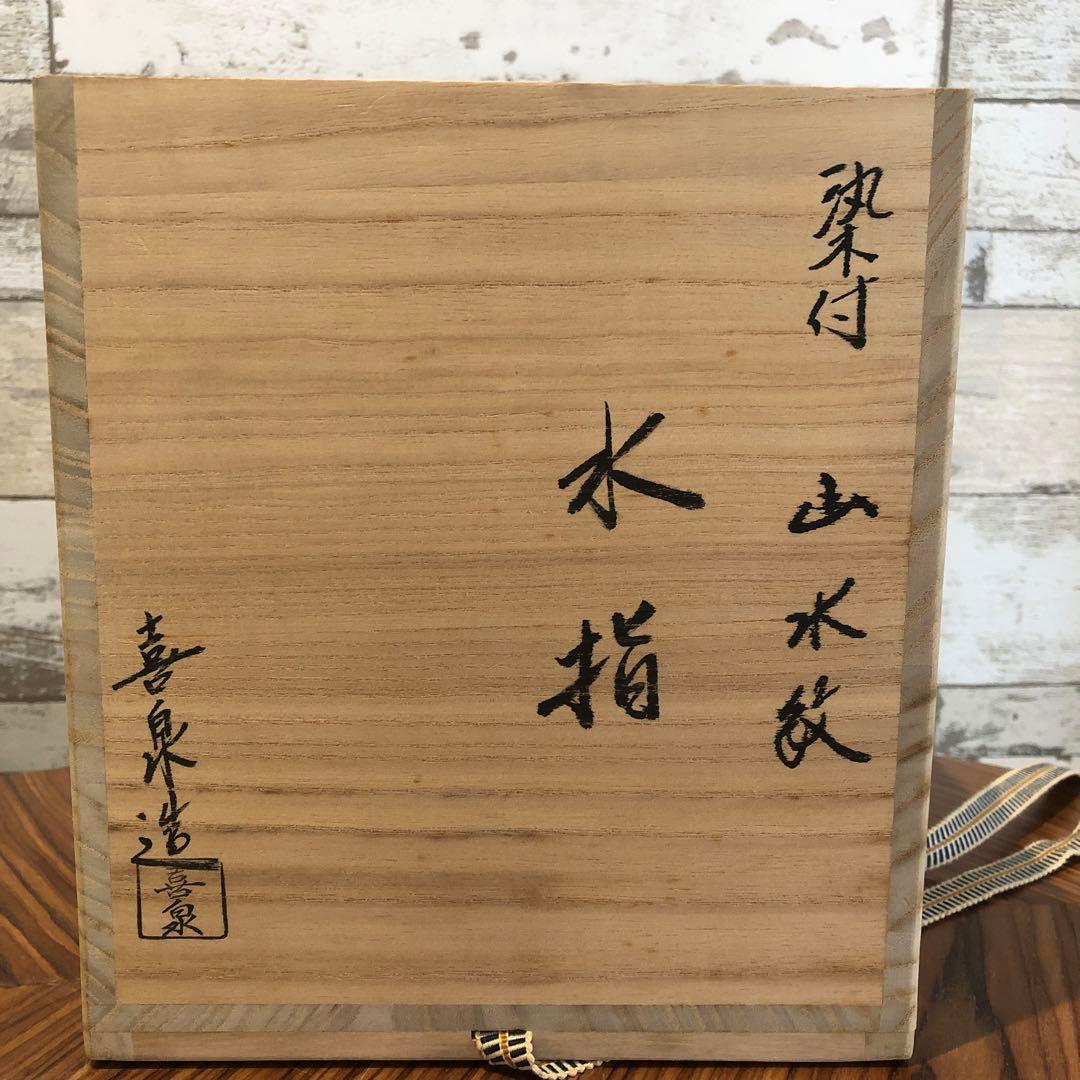 染付 山水紋
水指
喜泉造
喜泉